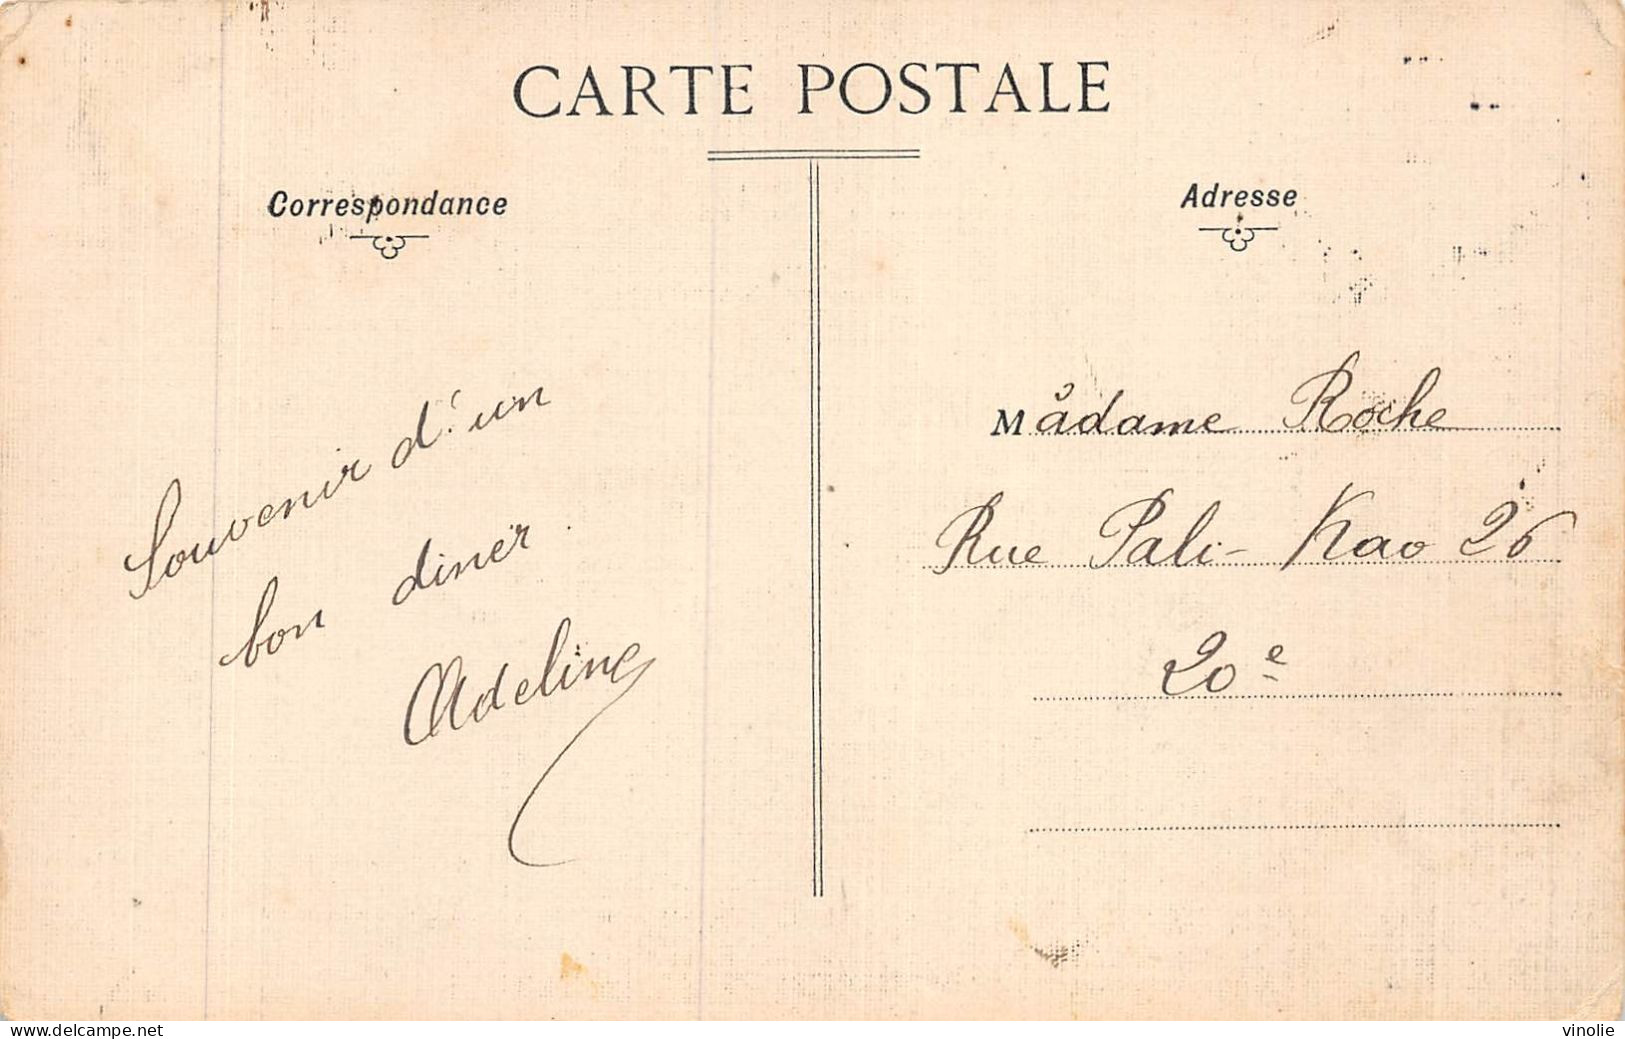 CARTE POSTALE
Correspondance
Souvenir d'un
bon diner.
Adeline
Adresse
Madame Roche
Rue Pali-Kao 26
20e
www.delcampe.net
vinolie